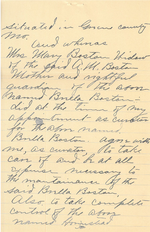 situated in Greene county
Mo.
And whereas
Mrs. Mary Boston Widow
of the said A.M. Boston
Mother and rightful
guardian of the above
named Brilla Boston
did at the time of my
appointment as curator
for the above named
Brilla Boston. agree with
me, as curator to take
care of and bear all
expense necessary to
the maintainance of the
said Brilla Boston
Also to take complete
control of the above
named